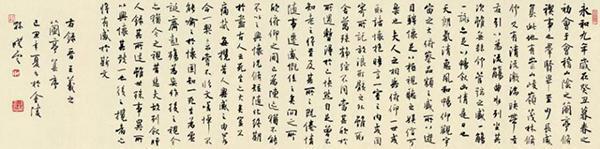 永和九年歲在癸丑暮春之
初會于會稽山陰之蘭亭脩
禊事也羣賢畢至少長咸
集此地有崇山峻嶺茂林脩
竹又有清流激湍暎帶左
右引以為流觴曲水列坐其
次雖無絲竹管弦之盛一觴
一詠亦足以暢敘幽情是日也
天朗氣清惠風和暢仰觀宇
宙之大俯察品類之盛所以遊
目騁懷足以極視聽之娛信可
樂也夫人之相與俯仰一世或
取諸懷抱悟言一室之內或因
寄所託放浪形骸之外雖趣
舍萬殊靜躁不同當其欣於
所遇暫得於己快然自足不
知老之將至及其所之既倦情
隨事遷感慨係之矣向之所
欣俛仰之間已為陳迹猶不能
不以之興懷況脩短隨化終期
於盡古人云死生亦大矣豈不
痛哉每攬昔人興感之由若
合一契未嘗不臨文嗟悼不
能喻之於懷固知一死生為虛
誕齊彭殤為妄作後之視今
亦猶今之視昔悲夫故列敘時
人錄其所述雖世殊事異所
以興懷其致一也後之攬者
亦將有感於斯文
右錄晉王羲之
蘭亭集序
己丑年夏日於金陵